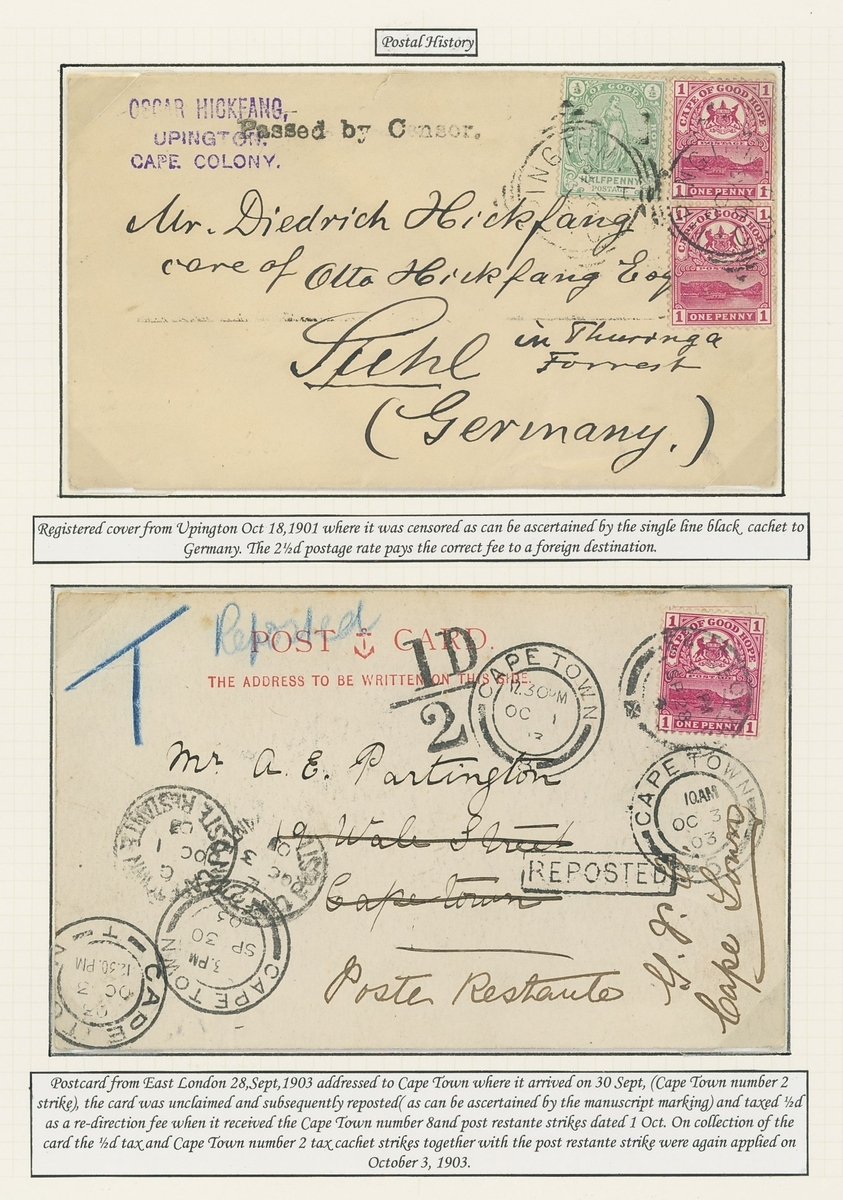 Postal History
OSCAR HICKFANG,
UPINGTON.
CAPE COLONY.
Passed by Censor.
½ OF GOOD ½
HALFPENNY
POSTAGE
1 1
CAPE OF GOOD HOPE
1 ONE PENNY 1
1 1
CAPE OF GOOD HOPE
1 ONE PENNY 1
Mr. Diedrich Hickfang
care of Otto Hickfang Esq
Suhl in Thuringa
Forrest
(Germany.)
Registered cover from Upington Oct 18,1901 where it was censored as can be ascertained by the single line black cachet to
Germany. The 2½d postage rate pays the correct fee to a foreign destination.
T
Reposted
POST CARD.
THE ADDRESS TO BE WRITTEN ON THIS SIDE.
1D
2
CAPE TOWN
12.30PM
OC 1
3
8
1 1
CAPE OF GOOD HOPE
1 ONE PENNY 1
CAPE TOWN
10AM
OC 3
03
Mr A. E. Partington
19 Wale Street
Cape town
REPOSTED
Poste Restante
G.P.O.
Cape Town
POSTE RESTANTE
OC 1
OC 3
CAPE TOWN
3.PM
SP 30
03
CAPE TO
12.30.PM
OC 3
03
T
Postcard from East London 28,Sept,1903 addressed to Cape Town where it arrived on 30 Sept, (Cape Town number 2
strike), the card was unclaimed and subsequently reposted( as can be ascertained by the manuscript marking) and taxed ½d
as a re-direction fee when it received the Cape Town number 8and post restante strikes dated 1 Oct. On collection of the
card the ½d tax and Cape Town number 2 tax cachet strikes together with the post restante strike were again applied on
October 3, 1903.